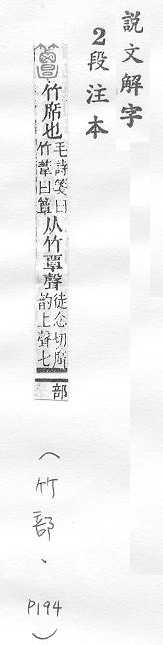 說文解字
2段注本
簟 竹席也 毛詩箋曰竹葦曰簟 从竹覃聲 徒念切廣韵上聲七部
(竹部、P194)